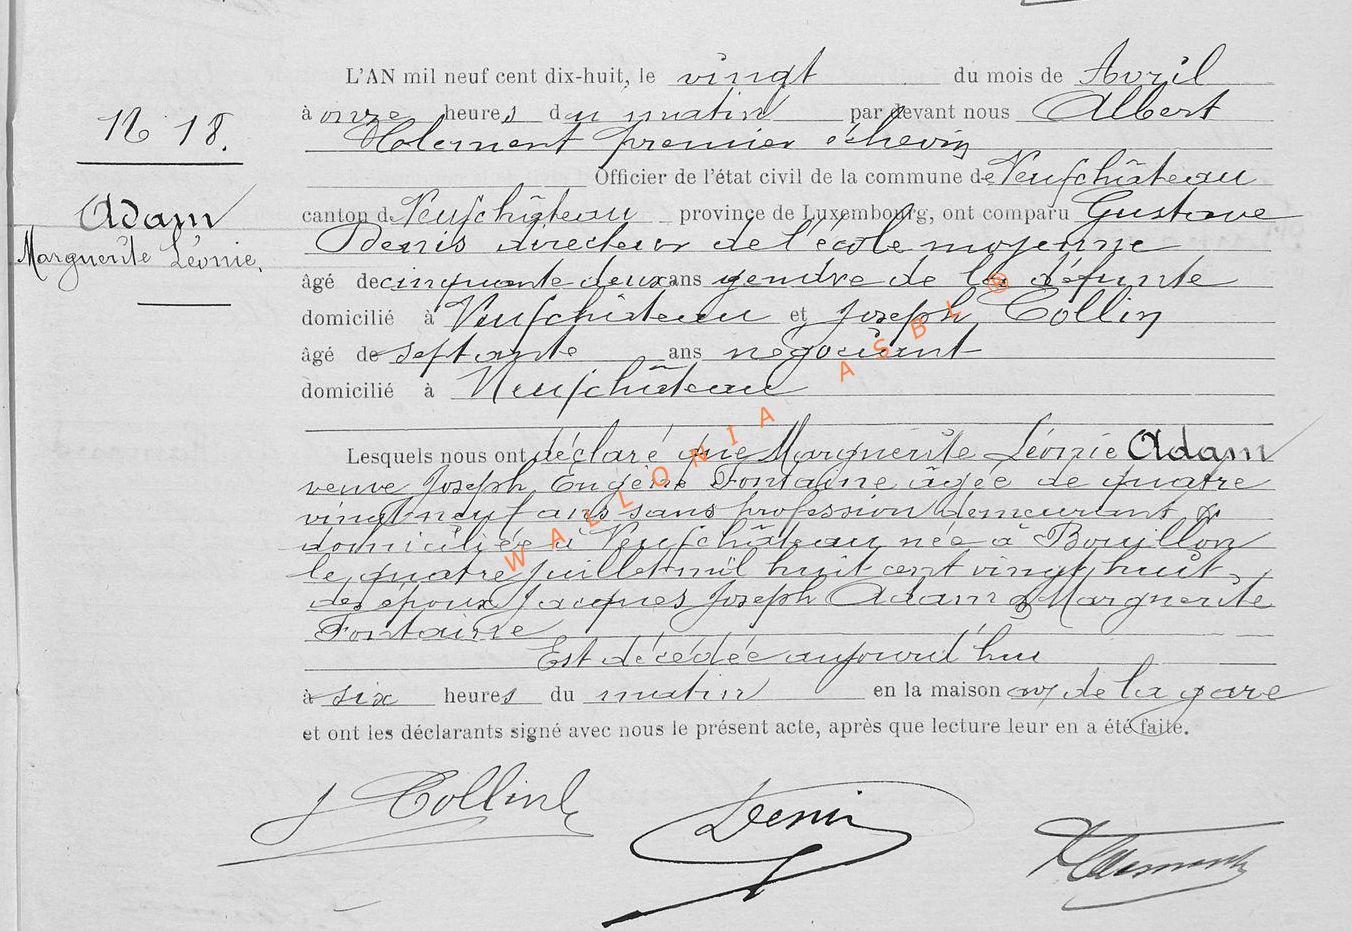 N° 18.
Adam
Marguerite Léonie.
L'AN mil neuf cent dix-huit, le vingt du mois de Avril
à onze heures du matin par devant nous Albert
premier échevin
Officier de l'état civil de la commune de Neufchâteau
canton de Neufchâteau province de Luxembourg, ont comparu Gustave
Denis directeur de l'école moyenne
âgé de cinquante deux ans gendre de la défunte
domicilié à Neufchâteau et Joseph Collin
âgé de septante ans négociant
domicilié à Neufchâteau
Lesquels nous ont déclaré que Marguerite Léonie Adam
veuve Joseph Eugène Fontaine âgée de quatre
vingt neuf ans sans profession demeurant &
domiciliée à Neufchâteau née à Bouillon
le quatre juillet mil huit cent vingt huit
des époux Jacques Joseph Adam & Marguerite
Fontaine
Est décédée aujourd'hui
à six heures du matin en la maison av. de la gare
et ont les déclarants signé avec nous le présent acte, après que lecture leur en a été faite.
J Collin
Denis
WALLONIA ASBL ®